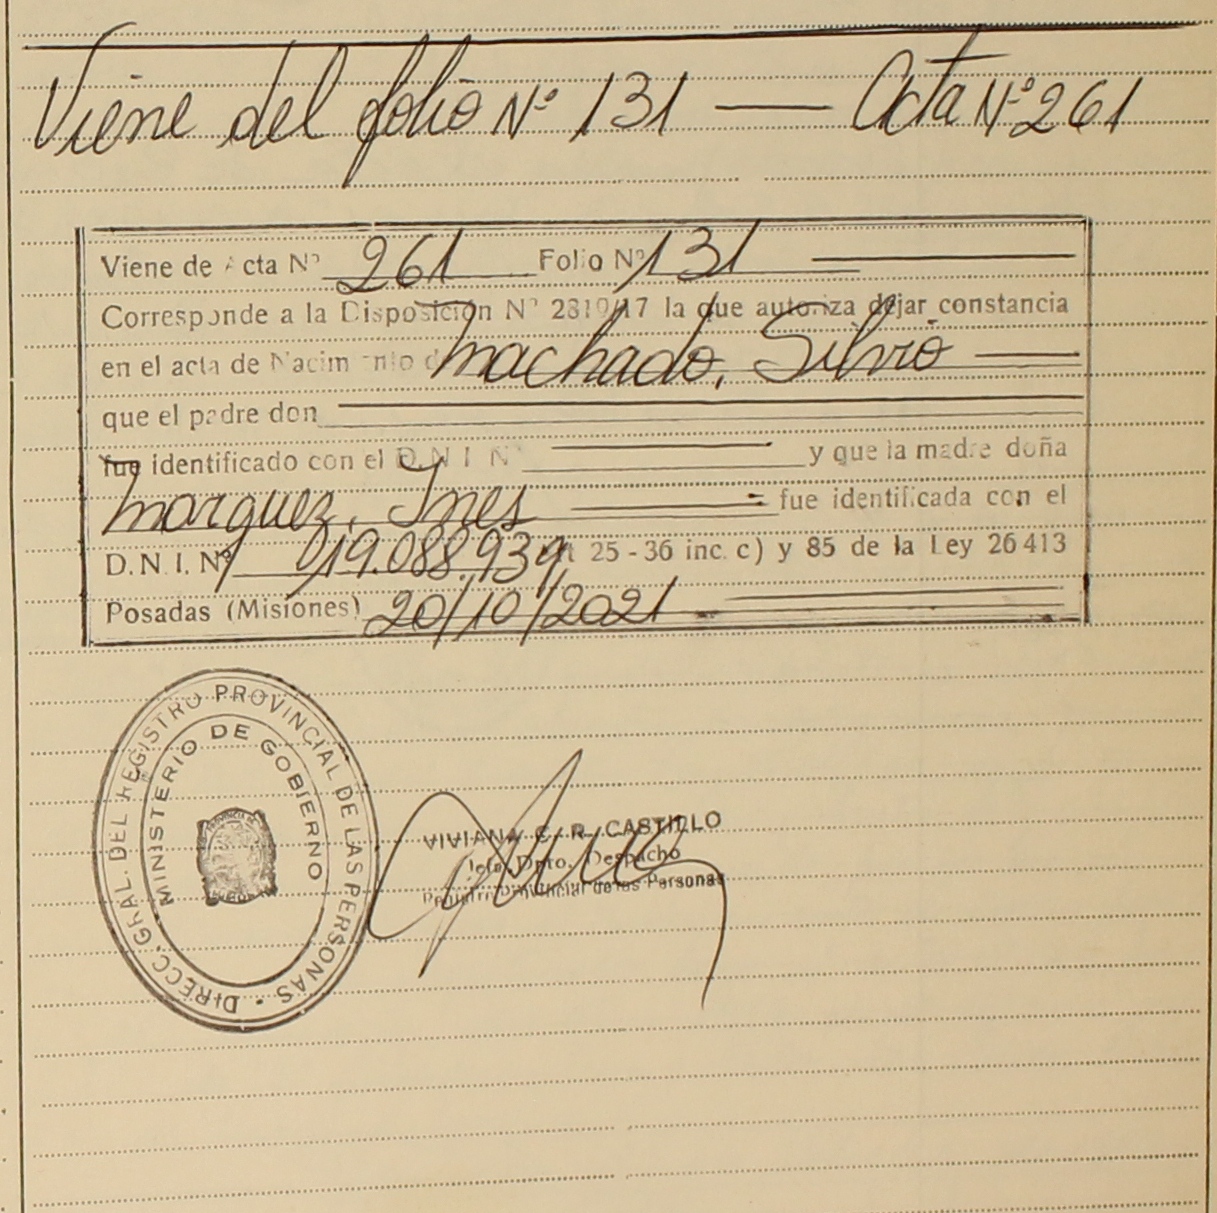 Viene del folio Nº 131 — Acta Nº 261
Viene de Acta Nº 261 Folio Nº 131
Corresponde a la Disposición Nº 2819/17 la que autoriza dejar constancia
en el acta de Nacimiento de Machado, Silvio
que el padre don
fue identificado con el D.N.I Nº y que la madre doña
Marquez, Ines fue identificada con el
D.N.I. Nº 19.088.939 Art 25-36 inc. c) y 85 de la Ley 26413
Posadas (Misiones) 20/10/2021
DIRECC. GRAL. DEL REGISTRO PROVINCIAL DE LAS PERSONAS
MINISTERIO DE GOBIERNO
VIVIANA C. R. CASTILLO
Jefe Dpto. Despacho
Registro Provincial de las Personas